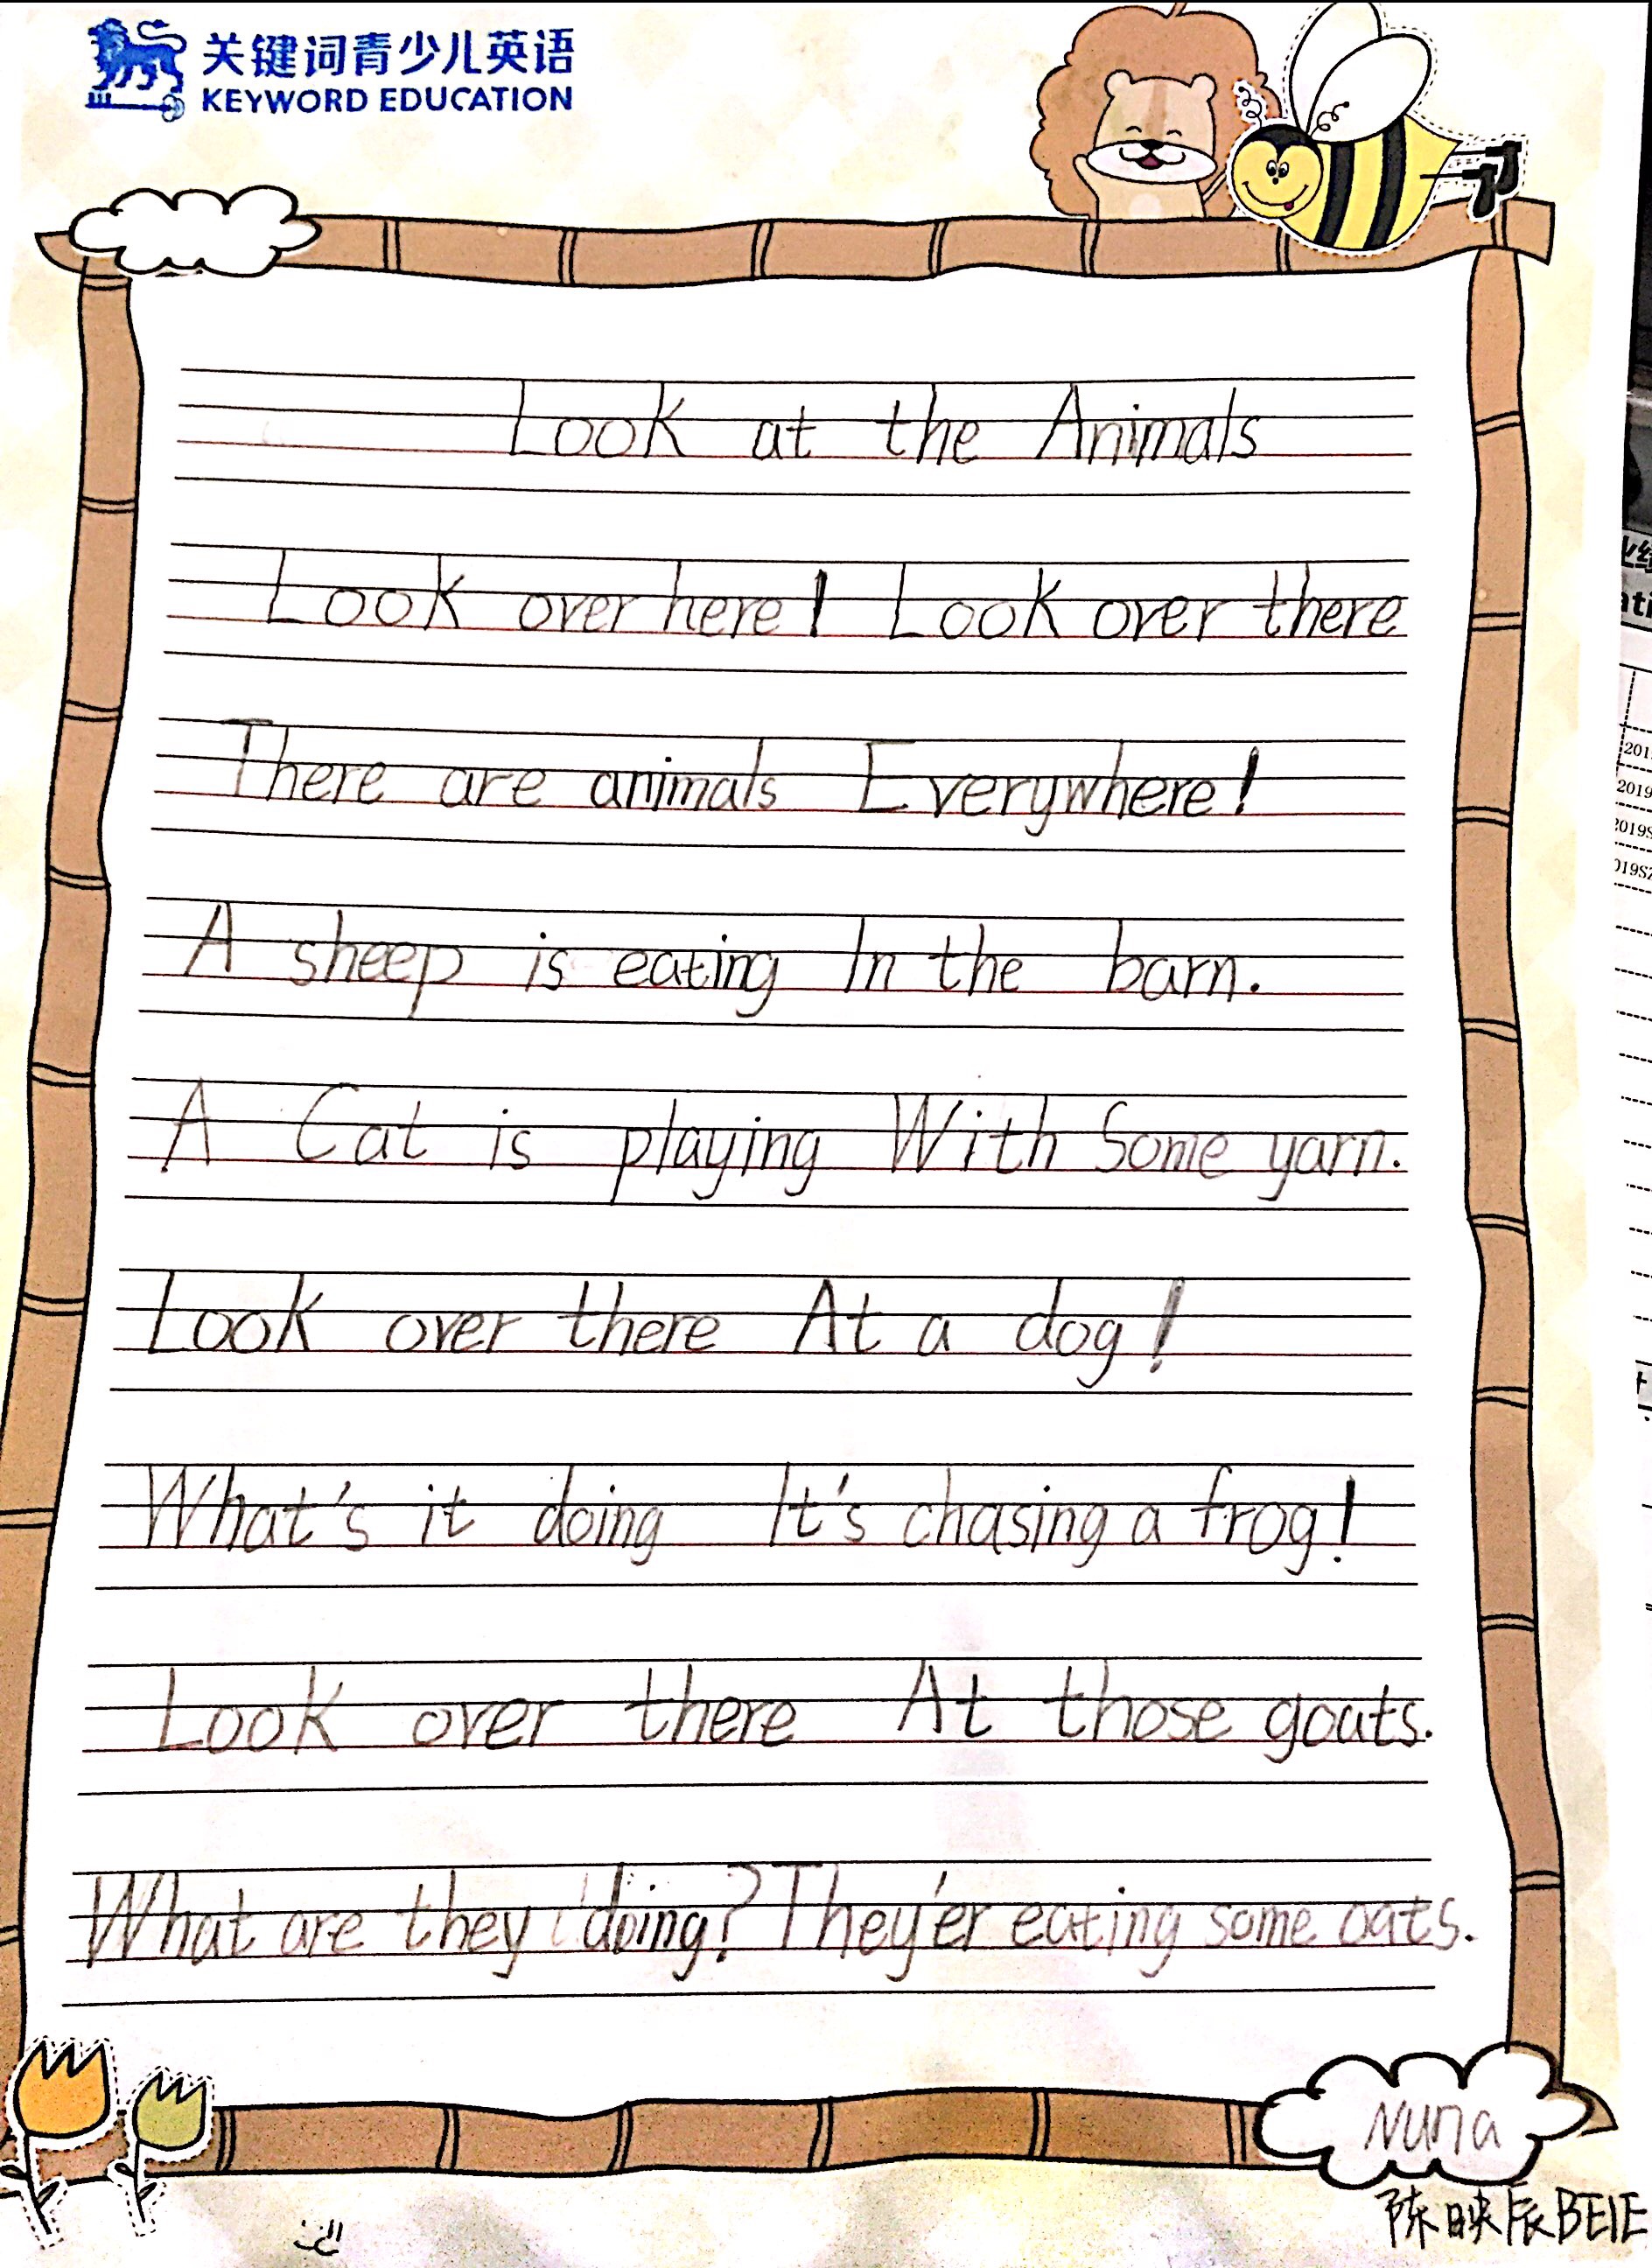 关键词青少儿英语
KEYWORD EDUCATION
Look at the Animals
Look over here! Look over there
There are animals Everywhere!
A sheep is eating In the barn.
A Cat is playing With Some yarn.
Look over there At a dog!
What's it doing It's chasing a frog!
Look over there At those goats.
What are they doing? They'er eating some oats.
Nuna
陈映辰BE1E